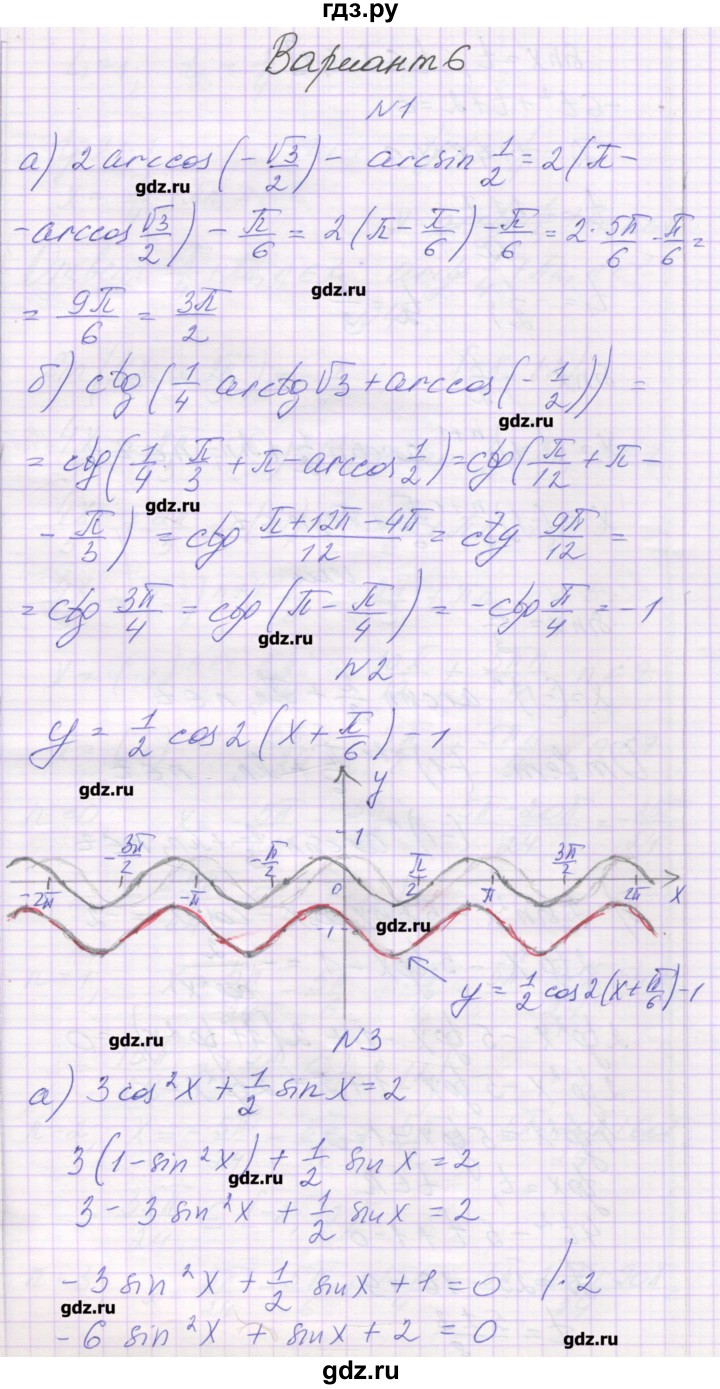 гдз.ру
Вариант 6
N1
а) 2 arccos(-√3/2) - arcsin 1/2 = 2(π-
gdz.ru
-arccos √3/2) - π/6 = 2(π - π/6) - π/6 = 2·5π/6 - π/6 =
gdz.ru
= 9π/6 = 3π/2
б) ctg(1/4 arctg√3 + arccos(-1/2)) =
gdz.ru
= ctg(1/4 · π/3 + π - arccos 1/2) = ctg(π/12 + π -
gdz.ru
- π/3) = ctg (π+12π-4π)/12 = ctg 9π/12 =
= ctg 3π/4 = ctg(π - π/4) = -ctg π/4 = -1
gdz.ru
N2
y = 1/2 cos2(x+π/6) - 1
gdz.ru
y
1
-3π/2 -π/2 π/2 3π/2
-2π -π 0 π 2π x
gdz.ru
-1
y = 1/2 cos2(x+π/6)-1
gdz.ru
N3
а) 3cos²x + 1/2 sinx = 2
3(1-sin²x) + 1/2 sinx = 2
gdz.ru
3 - 3sin²x + 1/2 sinx = 2
-3sin²x + 1/2 sinx + 1 = 0 /·2
gdz.ru
-6 sin²x + sinx + 2 = 0
gdz.ru
gdz.ru